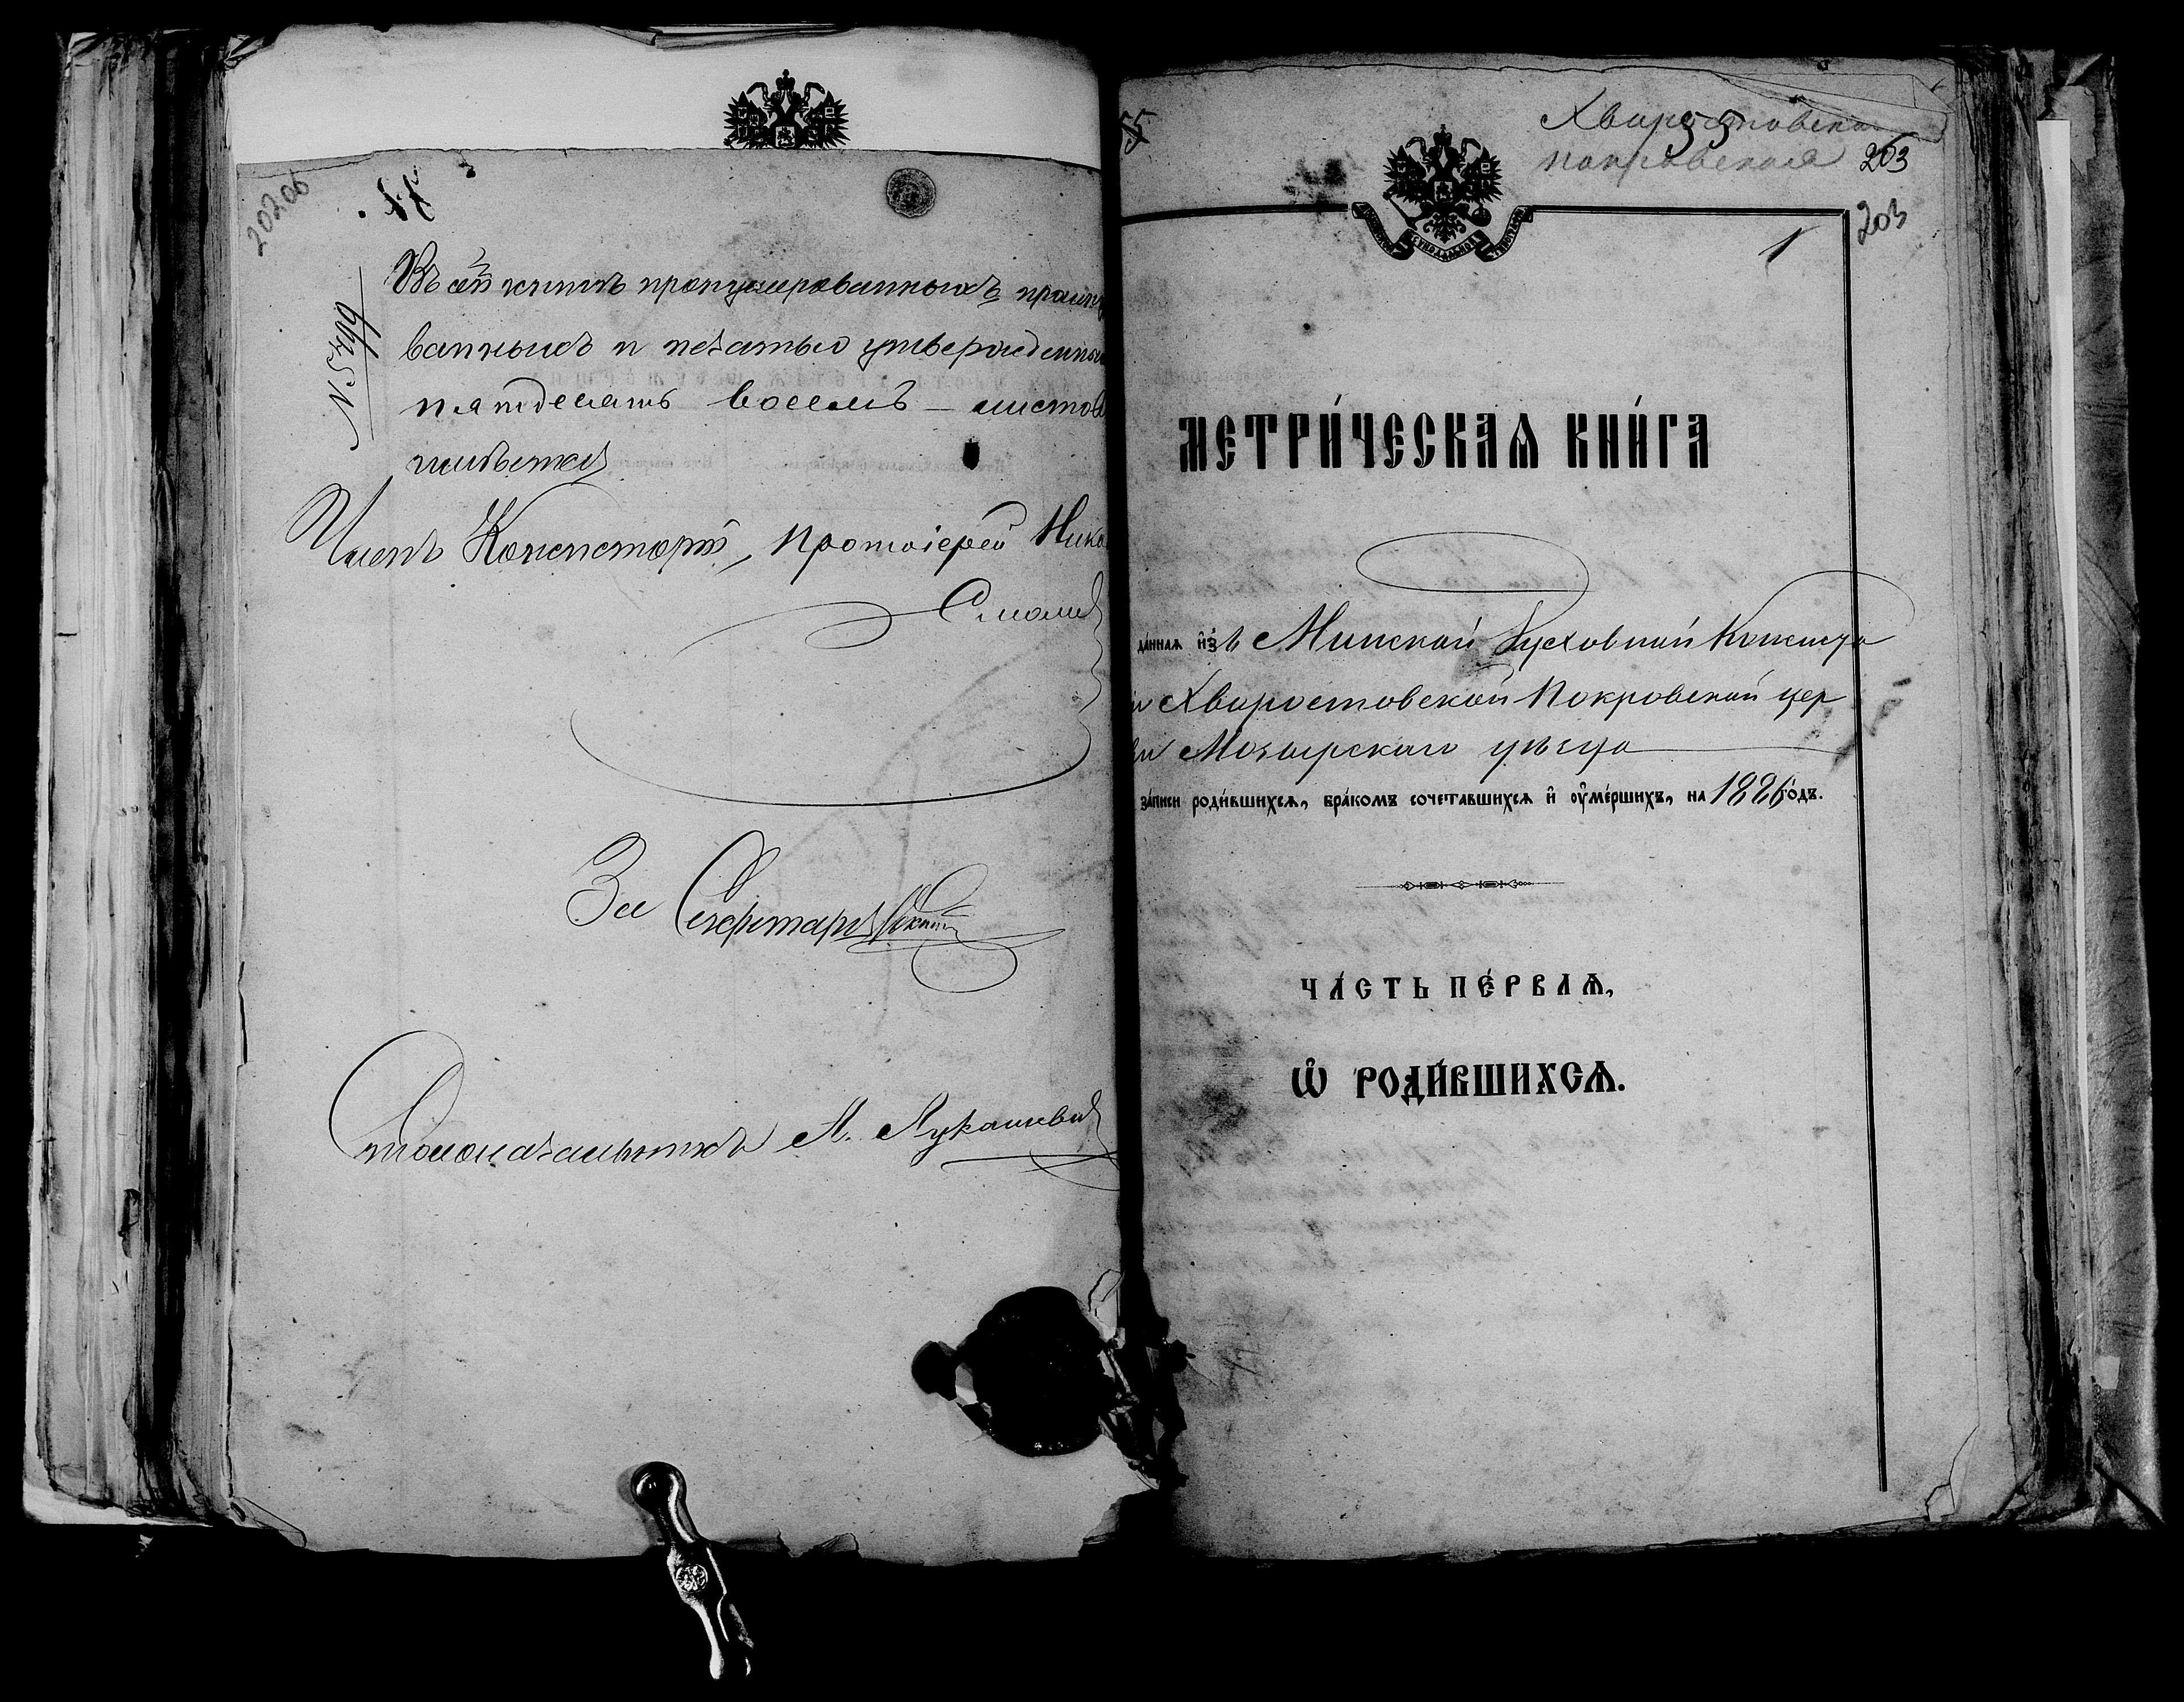 202об
71.
№ 5799
Въ сей книгѣ пронумерованныхъ, прошну
ванныхъ и печатью утвержденны
пятдесятъ восемъ — листовъ
Членъ Консисторіи, Протоіерей Нико
Смолич
За Секретаря
Столоначальникъ А. Лукашевич
55
Хворостовская 55
Покровская 203
203
1
МЕТРИ́ЧЕСКАѦ КНИ́ГА
да́ннаѧ и҆зъ Минской Духовной Консисто
и Хворостовской Покровской цер
ви Мозырскаго уѣзда
за́писи роди́вшихсѧ, бра́комъ сочета́вшихсѧ и҆ оу҆ме́ршихъ, на 1886 го́дъ.
ЧА́СТЬ ПЕ́РВАѦ,
Ѡ҆ РОДИ́ВШИХСѦ.